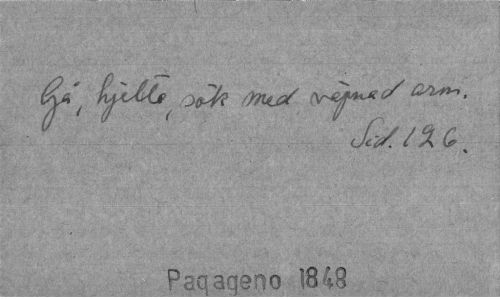 Gå, hjelte, sök med väpnad arm.
Sid. 126.
Papageno 1848